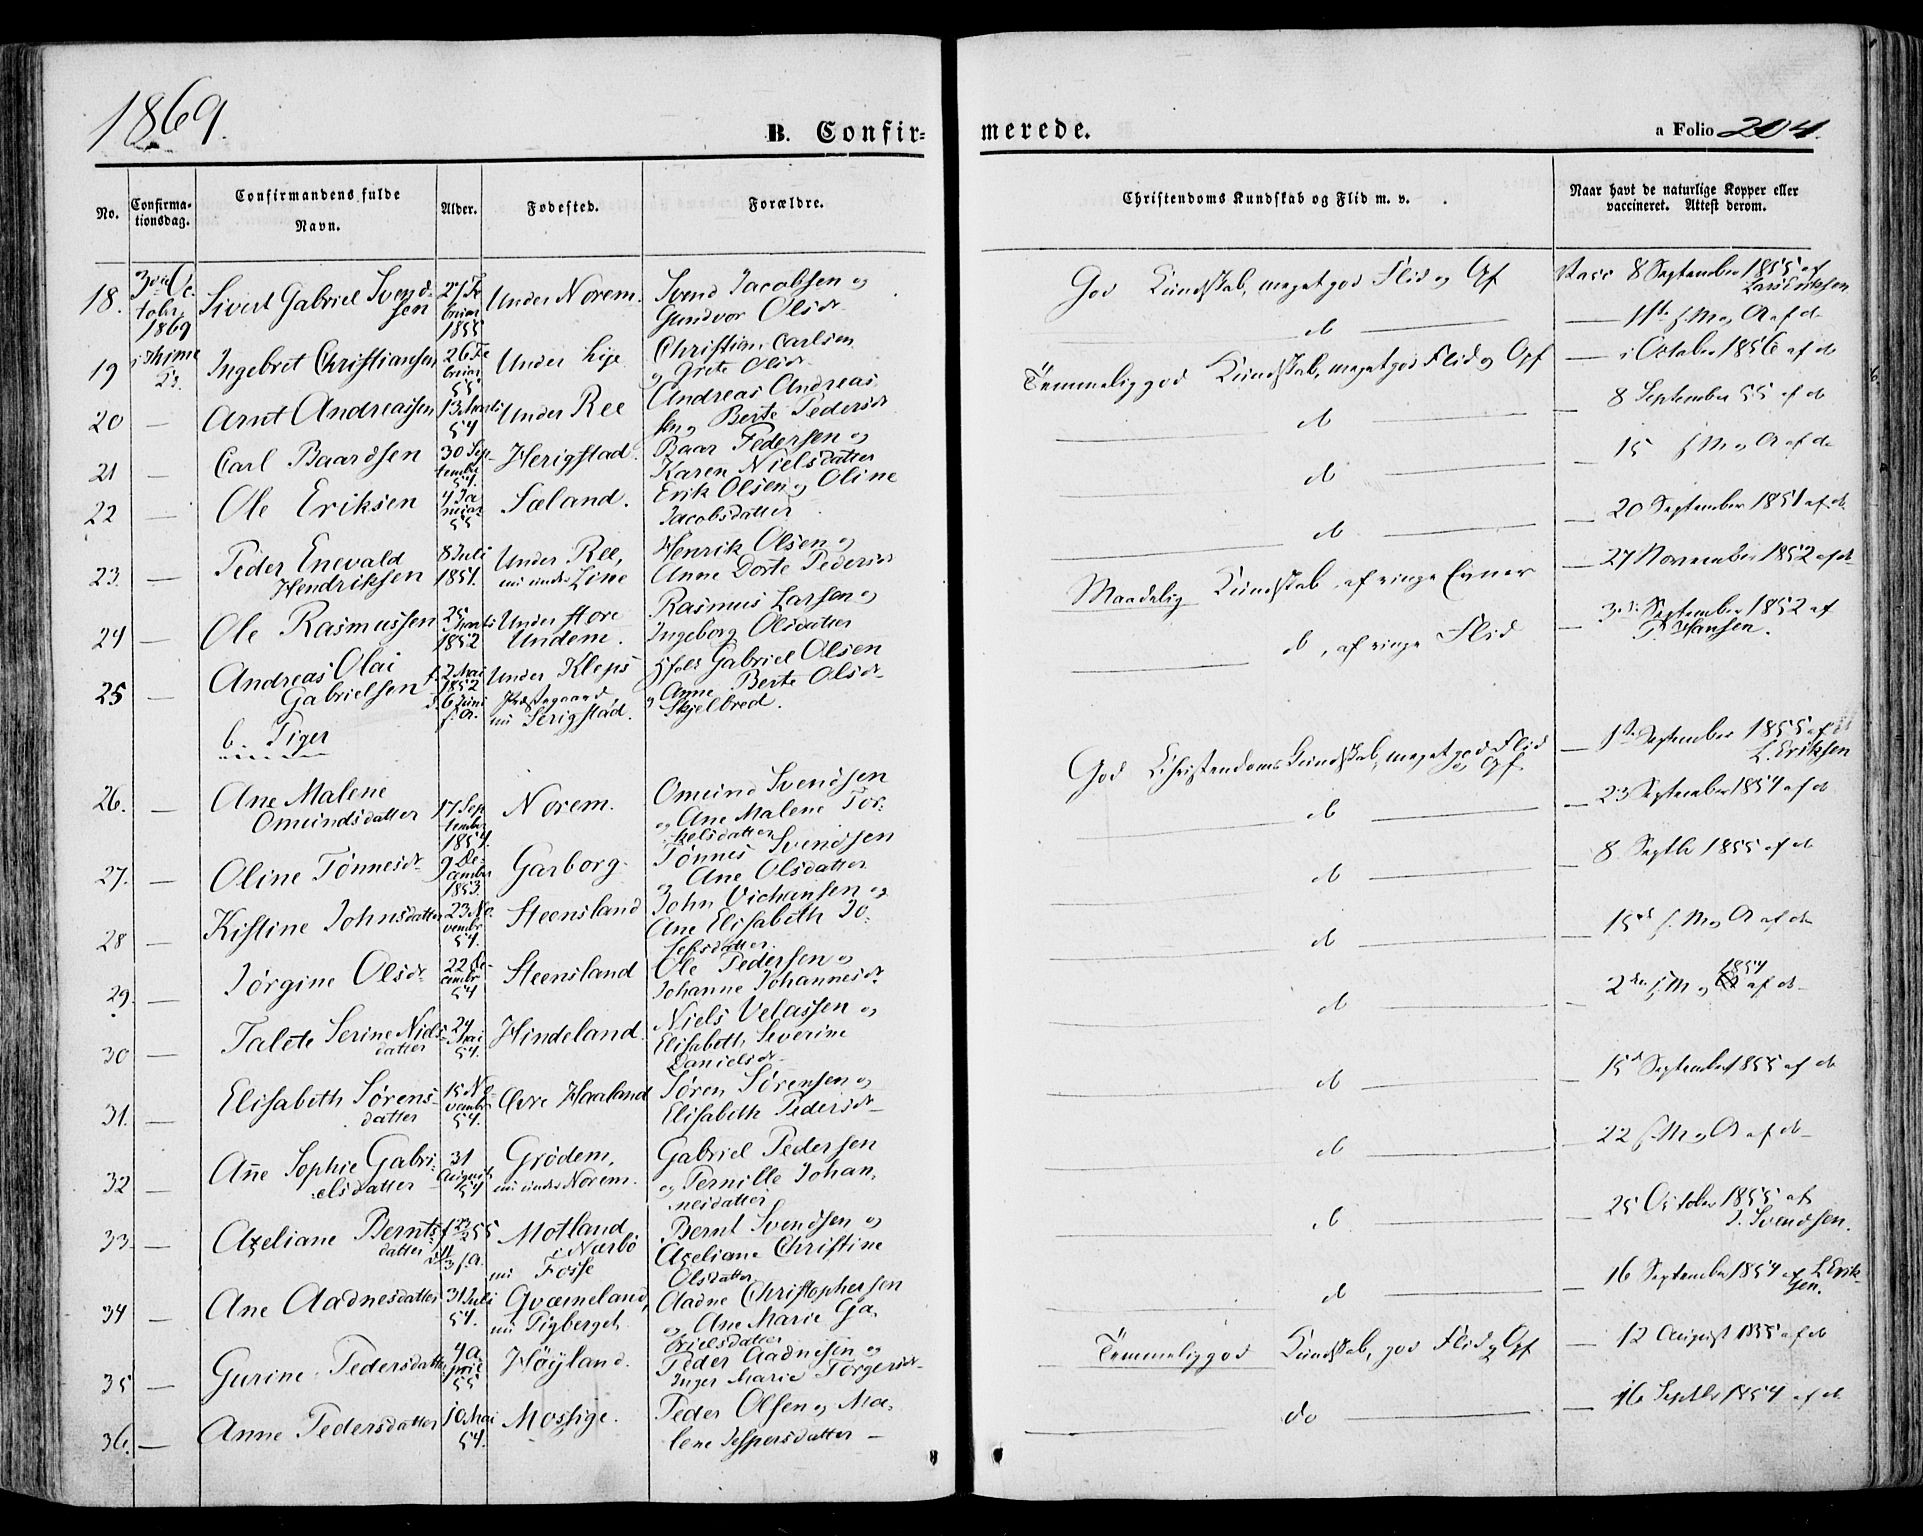 1869.
B. Confir-
merede.
a Folio 204.
No.
Confirma-
tionsdag.
Confirmandens fulde
Navn.
Alder.
Fødested.
Forældre.
Christendoms Kundskab og Flid m. v.
Naar havt de naturlige Kopper eller
vaccineret. Attest derom.
18. 3die Oc-
tober
1869
Sivert Gabriel Svend-
sen
27 Fe
bruar
1855
Under Norem.
Svend Jacobsen og
Gundvor Olsdr
God Kundskab, meget god Flid og Opf
Vacc 8 September 1855 af
Lars Eriksen
19 i Thime
K.
Ingebret Christiansen
26 Fe
bruar
55
Under Lye
Christian Carlsen
og Grete Olsdr
do
11te s. M og A af do
20 —
Arnt Andreassen
13 Marts
54
Under Ree
Andreas Andreas
sen og Berte Pedersdr
Temmelig god Kundskab, meget god Flid og Opf
— i October 1856 af do
21 —
Carl Baardsen
30 Sep-
tember
54.
Herigstad.
Baar Pedersen og
Karen Nielsdatter
do
— 8 September 55 af do
22 —
Ole Eriksen
4 Ja
nuar
55
Sæland.
Erik Olsen og Oline
Jacobsdatter
do
— 15 s. M og A af do
23. —
Peder Enevald
Hendriksen
8 Juli
1851.
Under Ree,
nu under Line
Henrik Olsen og
Anne Dorte Pedersdr
do
— 20 September 1851 af do
24 —
Ole Rasmussen
25 Marts
1852
Under Store
Undem.
Rasmus Larsen og
Ingeborg Olsdatter
Maadelig Kundskab, af ringe Evner
— 27 November 1852 af do
25 —
Andreas Olai
Gabrielsen
f. 2 Mai
1852
d. 6 Juni
s. A.
Under Kleps
Præstegaard
nu Serigstad.
Gabriel Olsen
og Anne Berte Olsdr
Skjelbred.
do, af ringe Flid
— 3die September 1852 af
P Hansen.
b. Piger
26. —
Ane Malene
Omundsdatter
17 Sep
tember
1854.
Norem.
Omund Svendsen
og Ane Malene Tor-
kelsdatter
God Christendoms Kundskab, meget god Flid
og Opf
— 1ste September 1855 af
L. Eriksen
27. —
Oline Tønnesdr
9 De-
cember
1853.
Garborg.
Tønnes Svendsen
og Ane Olsdatter
do
— 23 September 1854 af do
28 —
Kistine Johnsdatter
23 No-
vember
54.
Steensland
John Vichansen og
Ane Elisabeth Jo-
sefsdatter.
do
— 8 Septbr 1855 af do
29. —
Jørgine Olsdr
22 De-
cember
54
Steensland
Ole Pedersen og
Johanne Johannesdr
do
— 15de s. M og A af do
30 —
Talete Serine Niels-
datter
24
Mai
54.
Hindeland.
Niels Velassen og
Elisabeth Severine
Danielsdr
do
— 2den s. M og 1854 af do
31. —
Elisabeth Sørens-
datter
15 No-
vember
54.
Øvre Haaland
Søren Sørensen og
Elisabeth Pedersdr
do
— 15de September 1855 af do
32 —
Ane Sophie Gabri-
elsdatter
31
August
54
Grødem,
nu under Norem.
Gabriel Pedersen
og Pernille Johan-
nesdatter
do
— 22 s. M og A af do
33. —
Axeliane Bernts-
datter
Motland
i Nærbø
nu Fosse
Bernt Svendsen og
Axeliane Christine
Olsdatter
do
— 25 October 1855 af
J. Svendsen.
34 —
Ane Aadnesdatter
31 Juli
54.
Qværneland,
nu Tigberget
Aadne Christophersen
og Ane Marie Ga-
brielsdatter
do
— 16 September 1854 af L Erik-
sen.
35 —
Gurine Pedersdatter
4 A-
pril
55
Høyland.
Peder Aadnesen og
Inger Marie Torgersdr
Temmelig god Kundskab, god Flid og Opf
— 12 August 1855 af do
36. —
Anne Pedersdatter
10 Mai
54.
Mossige.
Peder Olsen og Ma-
lene Jespersdatter —
do
— 16 Septbr 1854 af do